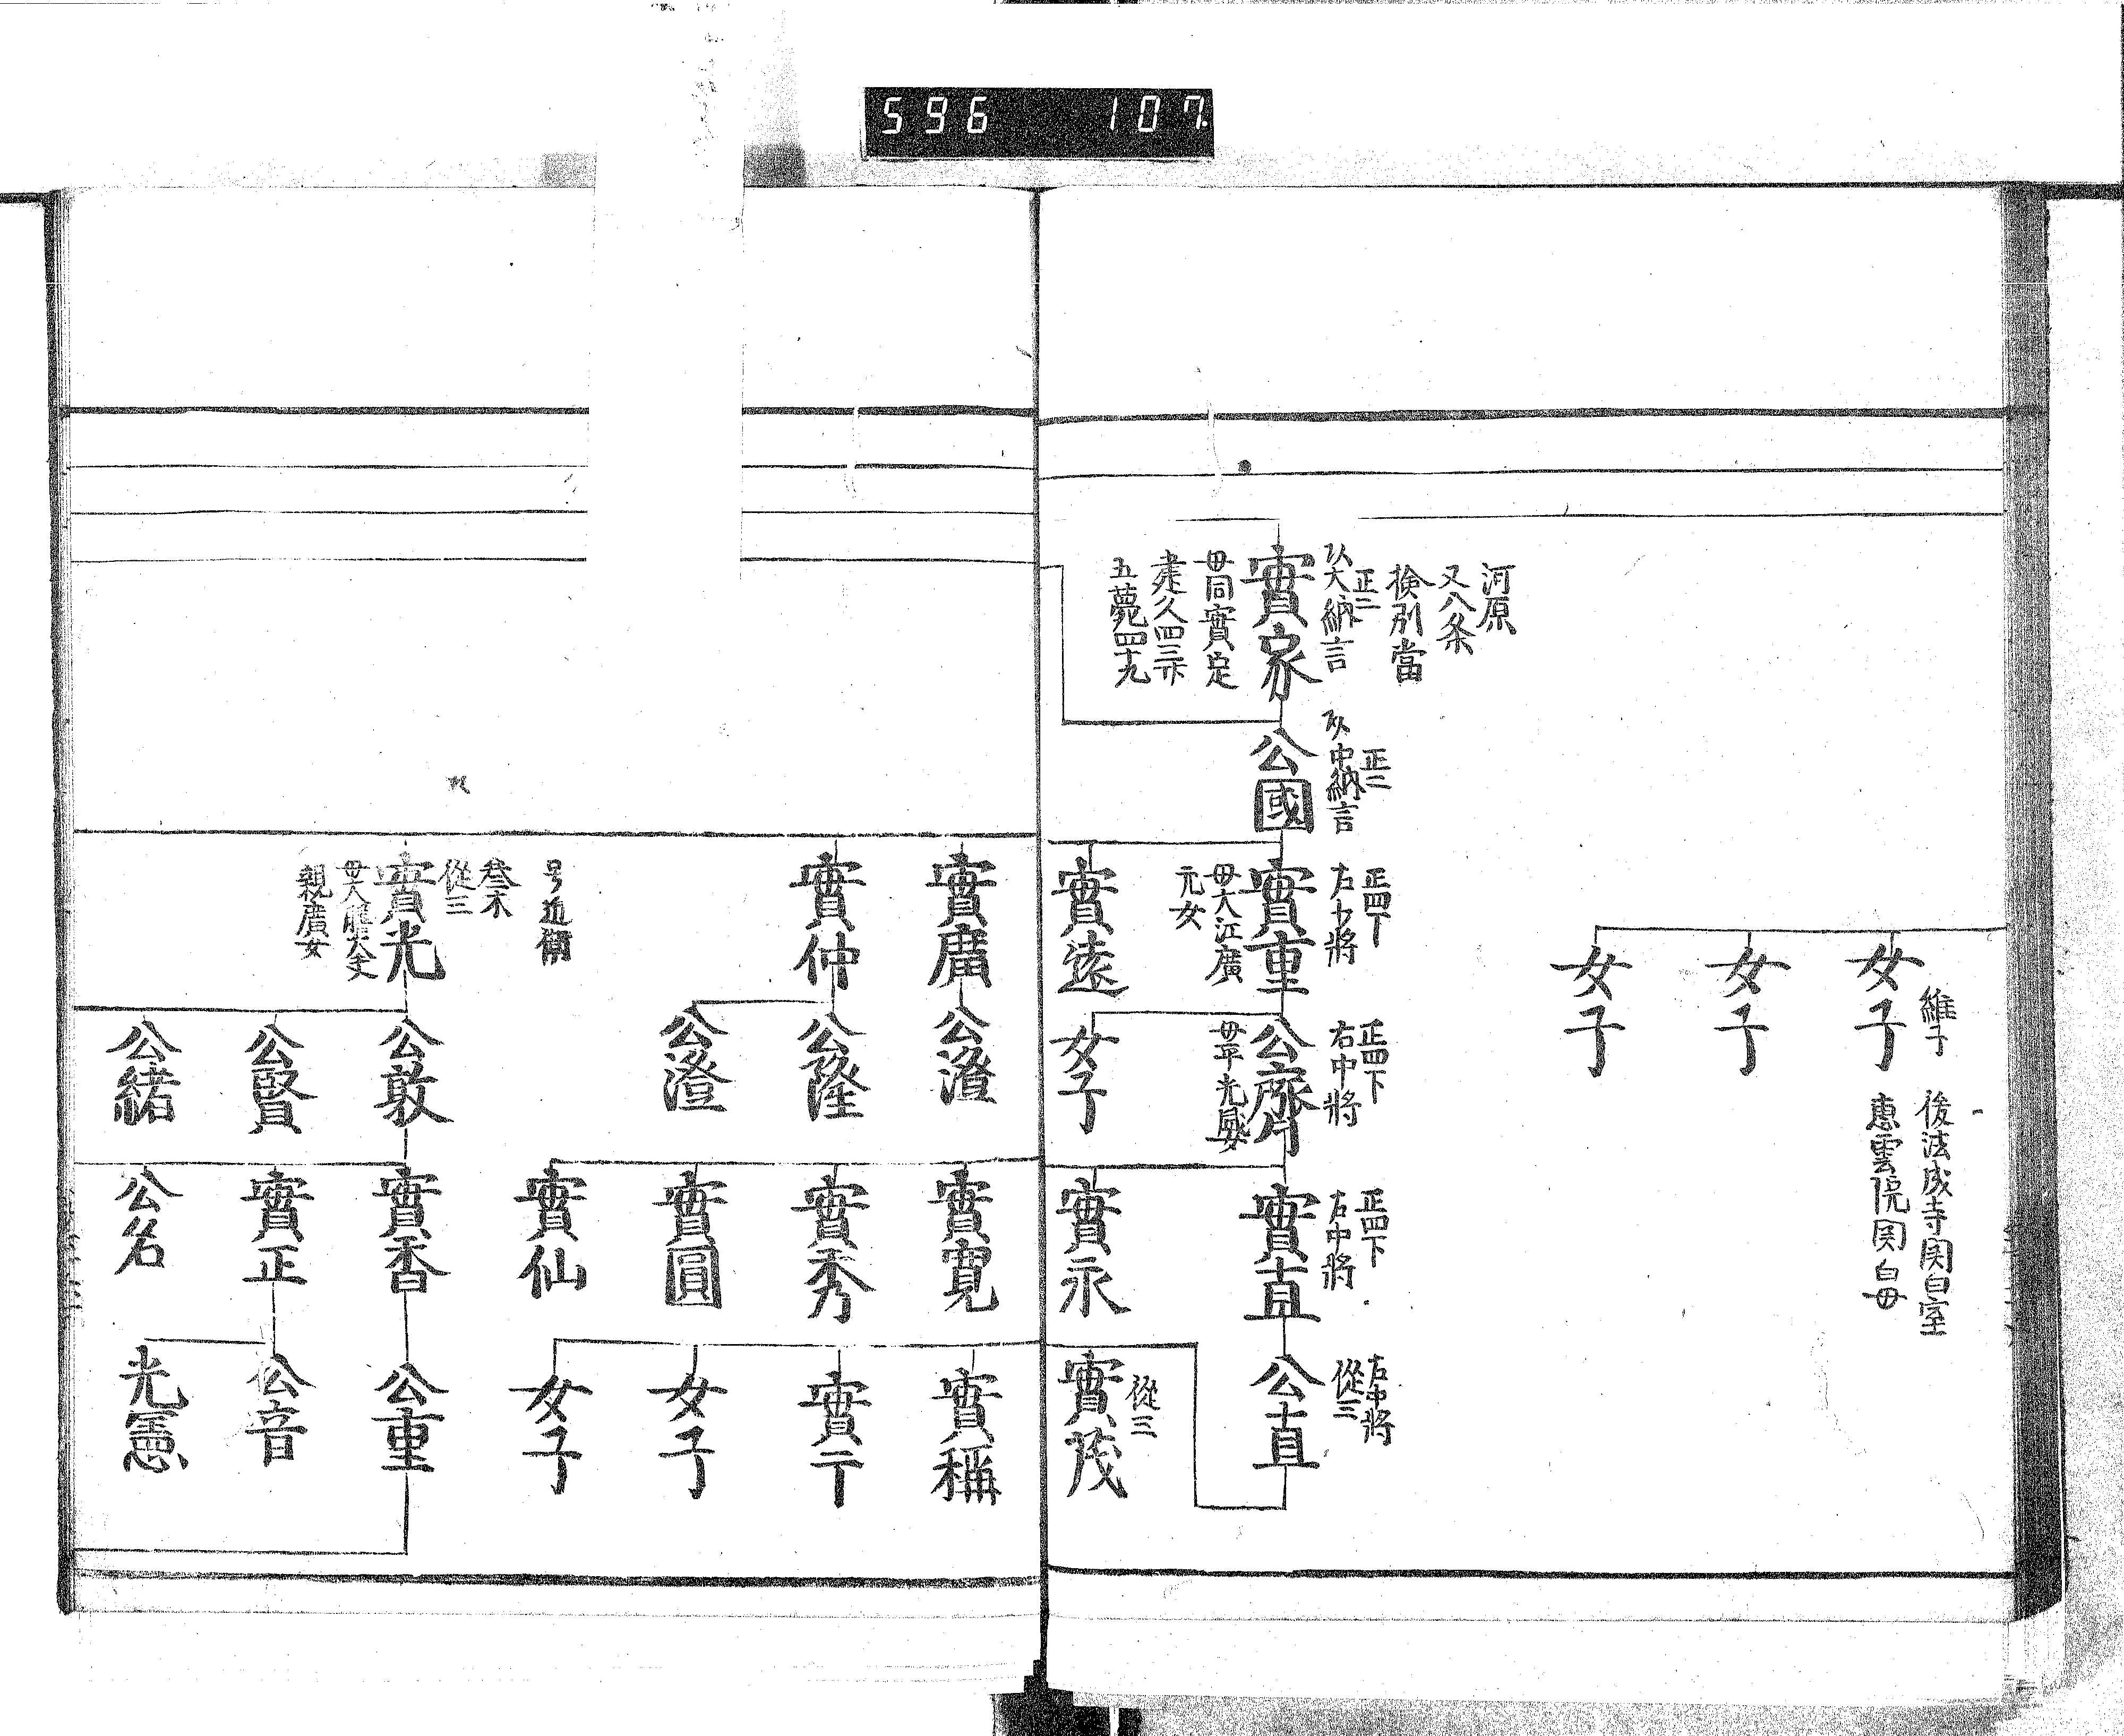 596 107
維子
後法成寺関白室
恵雲院関白母
女子
女子
女子
河原
又八条
検別當
正二
大納言
實家
母同實定
建久四三
五薨四十九
正二
中納言
公國
正四下
右少將
實重
母大江廣
元女
實遠
正四下
右中將
公齊
女子
正四下
右中將
實直
實永
右中將
從三
公直
從三
實茂
實廣
公澄
實寛
實稱
實仲
公隆
實秀
公澄
實圓
女子
實仙
女子
号近衛
從三
實光
母大膳大夫
親廣女
公敦
實香
公重
公賢
實正
公音
公緒
公名
光憲